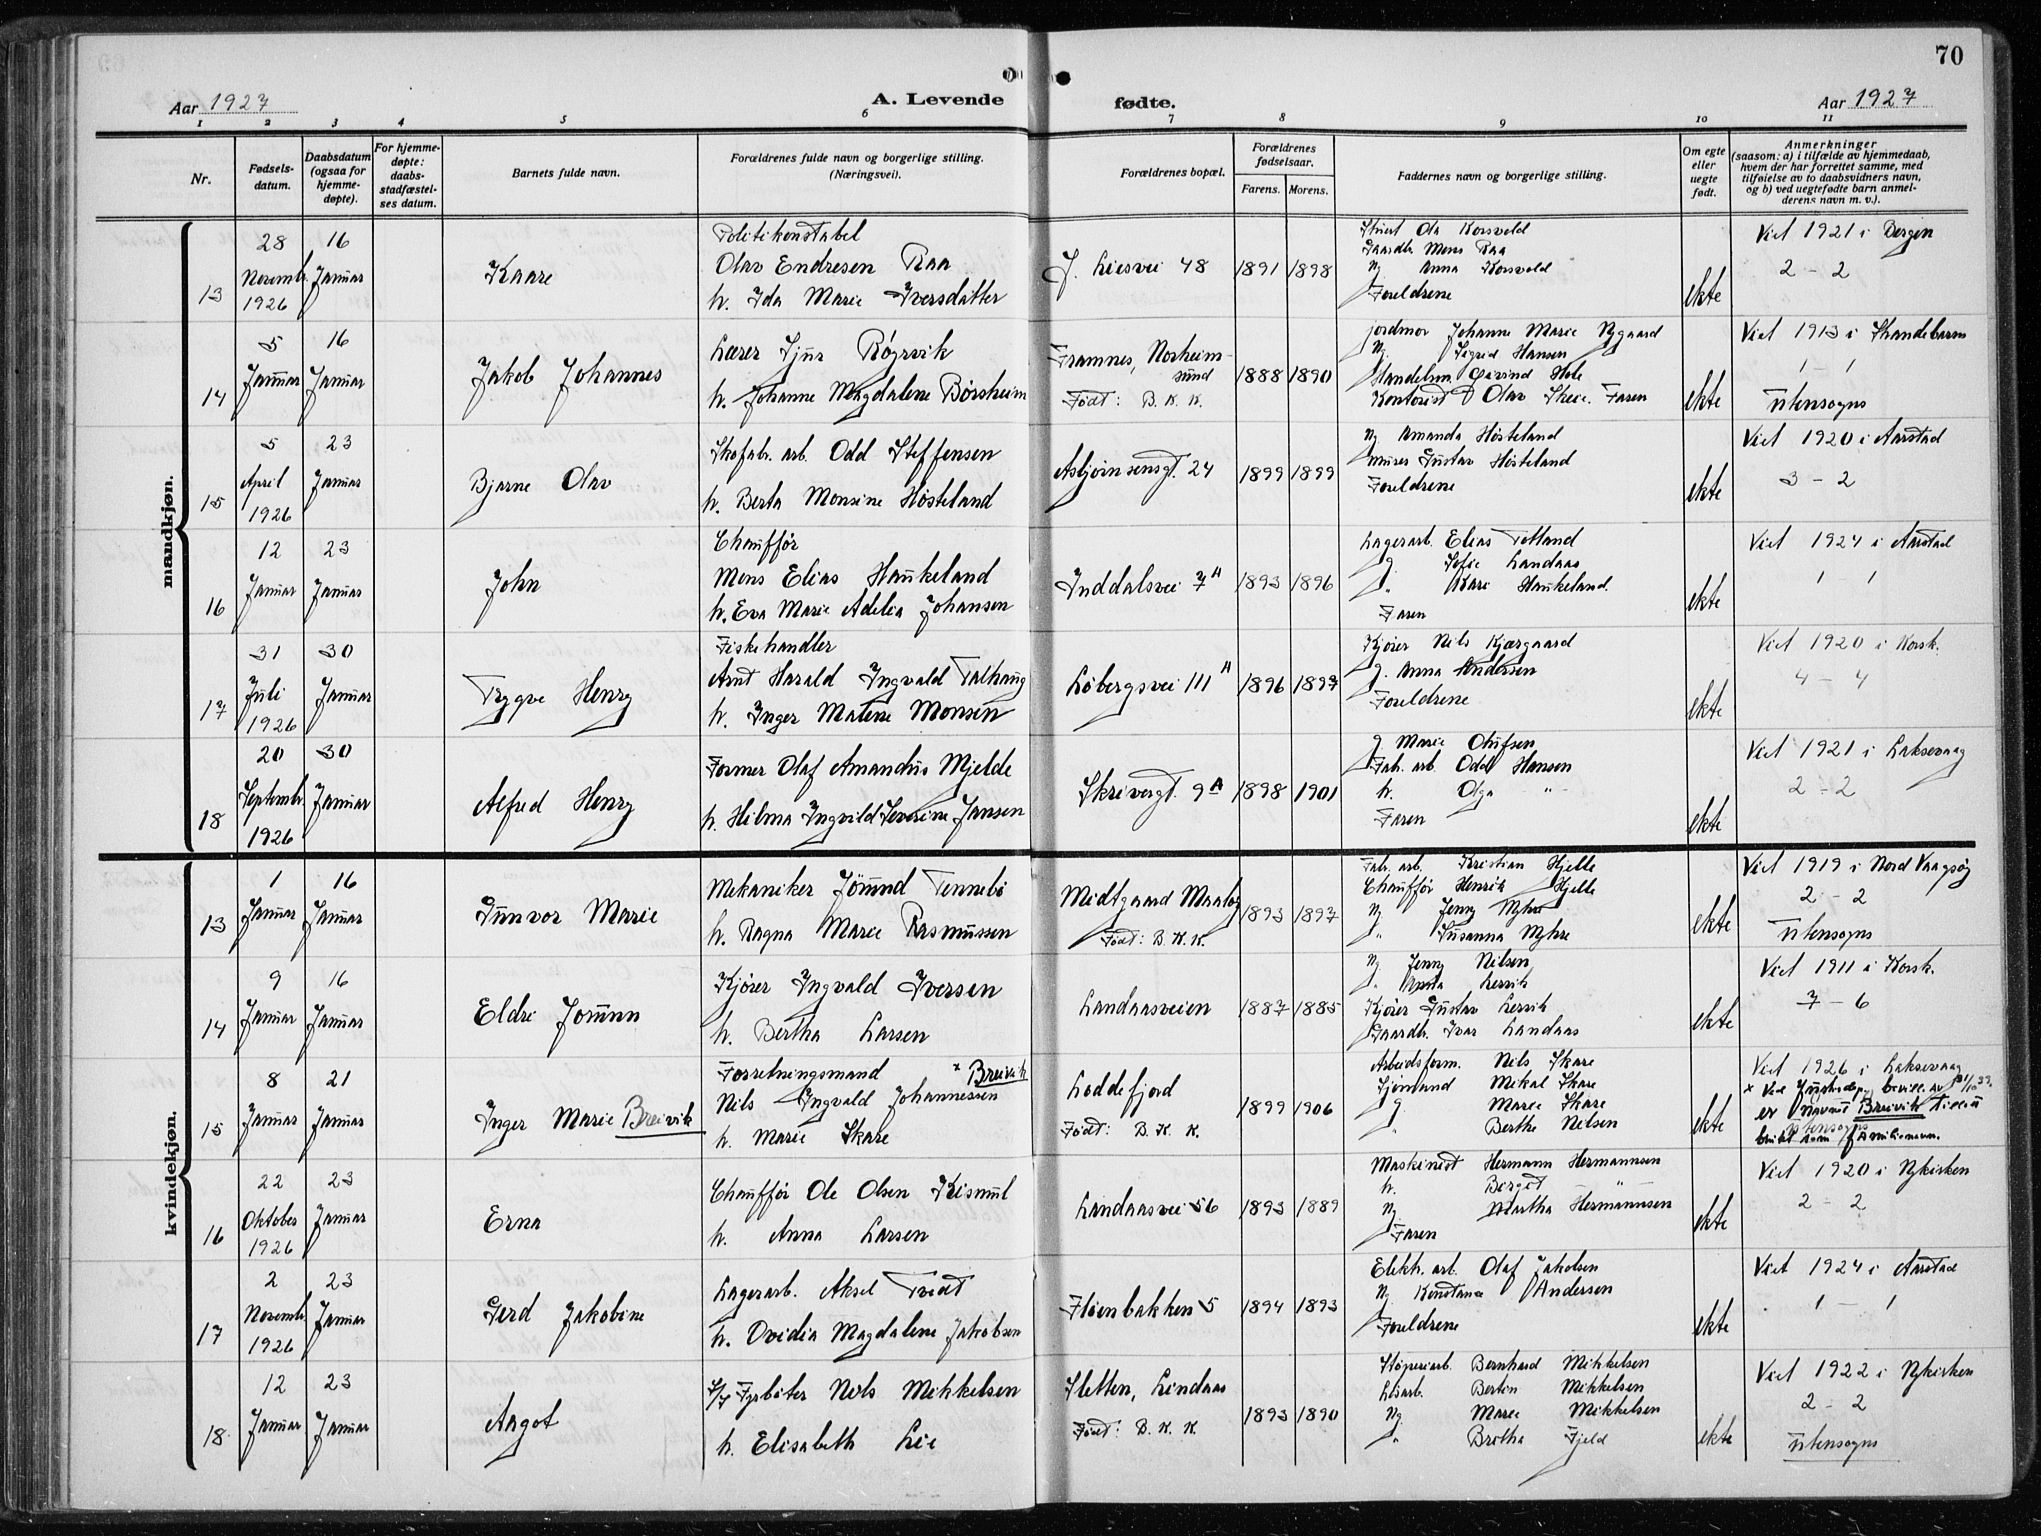 70
Aar 1927
A. Levende
fødte.
Aar 1927
1 2 3 4 5 6 7 8 9 10 11
Nr.
Fødsels-
datum.
Daabsdatum
(ogsaa for
hjemme-
døpte).
For hjemme-
døpte:
daabs-
stadfæstel-
ses datum.
Barnets fulde navn.
Forældrenes fulde navn og borgerlige stilling.
(Næringsvei).
Forældrenes bopæl.
Forældrenes
fødselsaar.
Farens. Morens.
Faddernes navn og borgerlige stilling.
Om egte
eller
uegte
født.
Anmerkninger
(saasom: a) i tilfælde av hjemmedaab,
hvem der har forrettet samme, med
tilføielse av to daabsvidners navn,
og b) ved uegtefødte barn anmel-
derens navn m. v.).
mandkjøn.
13
28
Novembr.
1926
16
Januar
Kaare
Politikonstabel
Olav Endresen Raa
h. Ida Marie Iversdatter
J. Liesvei 48
1891 1898
Ola Korsvold
Gaardbr. Mons Raa
Ug Anna Korsvold
Foreldrene
ekte
Viet 1921 i Bergen
2 - 2
14
5
Januar
16
Januar
Jakob Johannes
Lærer Sjur Røyrvik
h. Johanne Magdalene Børsheim
Framnes, Norheim-
sund
Født: B. K. K.
1888 1890
jordmor Johanne Marie Nygaard
Ug. Sigrid Hansen
Handelsm. Øivind Hole
Kontorist Olav Skeie. Faren
ekte
Viet 1913 i Strandebarm
1 - 1
Utensogns
15
5
April
1926
23
Januar
Bjarne Olav
Skofabr. arb. Odd Steffensen
h. Berta Monsine Høsteland
Asbjørnsensgt. 24
1899 1899
Ug Amanda Høsteland
Murer Gustav Høsteland
Foreldrene
ekte
Viet 1920 i Aarstad
3 - 2
16
12
Januar
23
Januar
John
Chauffør
Mons Elias Haukeland
h. Eva Marie Adelia Johansen
Inddalsvei 7A
1893 1896
Lagerarb. Elias Totland
g. Sofie Landaas
" Kari Haukeland.
Faren
ekte
Viet 1924 i Aarstad
1 - 1
17
31
Juli
1926
30
Januar
Trygve Henry
Fiskehandler
Arnt Harald Ingvald Talhaug
h. Inger Malene Monsen
Løbergsvei 111A
1896 1897
Kjører Nils Kjærgaard
g. Anna Andersen
Foreldrene
ekte
Viet 1920 i Korsk.
4 - 4
18
20
Septembr.
1926
30
Januar
Alfred Henry
Former Olaf Amandus Mjelde
h. Hilma Ingvild Severine Jansen
Skrivergt. 9A
1898 1901
g Marie Olufsen
Fab. arb. Odd Hansen
h. Olga "
Faren
ekte
Viet 1921 i Laksevaag
2 - 2
kvindekjøn.
13
1
Januar
16
Januar
Gunvor Marie
Mekaniker Jømund Tennebø
h. Ragna Marie Rasmussen
Midtgaard Maaløy
Født: B. K. K.
1893 1897
Fab. arb. Kristian Hjelle
Chauffør Henrik Hjelle
Ug Jenny Myhre
" Susanna Myhre
ekte
Viet 1919 i Nord Vaagsøy
2 - 2
Utensogns
14
9
Januar
16
Januar
Eldri Jorunn
Kjører Ingvald Iversen
h. Bertha Larsen
Landaasveien
1887 1885
Ug Jenny Nilsen
" Lervik
Kjører Gustav Lervik
Gaardbr. Ivar Landaas
ekte
Viet 1911 i Korsk.
7 - 6
15
8
Januar
21
Januar
Inger Marie Breivik
Forretningsmand x Breivik
Nils Ingvald Johannessen
h. Marie Skare
Loddefjord
Født: B. K. K.
1899 1906
Arbeidsform. Nils Skare
Sjømand Mikal Skare
g. Marie Skare
" Berthe Nilsen
ekte
Viet 1926 i Laksevaag
x Ved Justisdep. bevill. av 31/10 39.
er navnet Breivik tillatt
Utensogns
brukt som familienavn.
16
22
Oktober
1926
23
Januar
Erna
Chauffør Ole Olsen Kismul
h. Anna Larsen
Landaasvei 56
1893 1889
Maskinist Hermann Hermannsen
h. Berget — " —
Ug Martha Hermannsen
Faren
ekte
Viet 1920 i Nykirken
2 - 2
17
2
Novembr.
1926
23
Januar
Gerd Jakobine
Lagerarb. Aksel Tvedt
h. Ovidia Magdalene Jakobsen
Fløenbakken 5
1894 1893
Elekh. arb. Olaf Jakobsen
Ug Konstance Andersen
Foreldrene
ekte
Viet 1924 i Aarstad
1 - 1
18.
12
Januar
23
Januar
Aagot
S/F Fyrbøter Nils Mikkelsen
h. Elisabeth Lie
Sletten, Lindaas
Født: B. K. K.
1893 1890
Støperiarb. Bernhard Mikkelsen
Bertin Mikkelsen
Ug. Marie Mikkelsen
" Brotha Fjeld
ekte
Viet 1922 i Nykirken
2 - 2
Utensogns